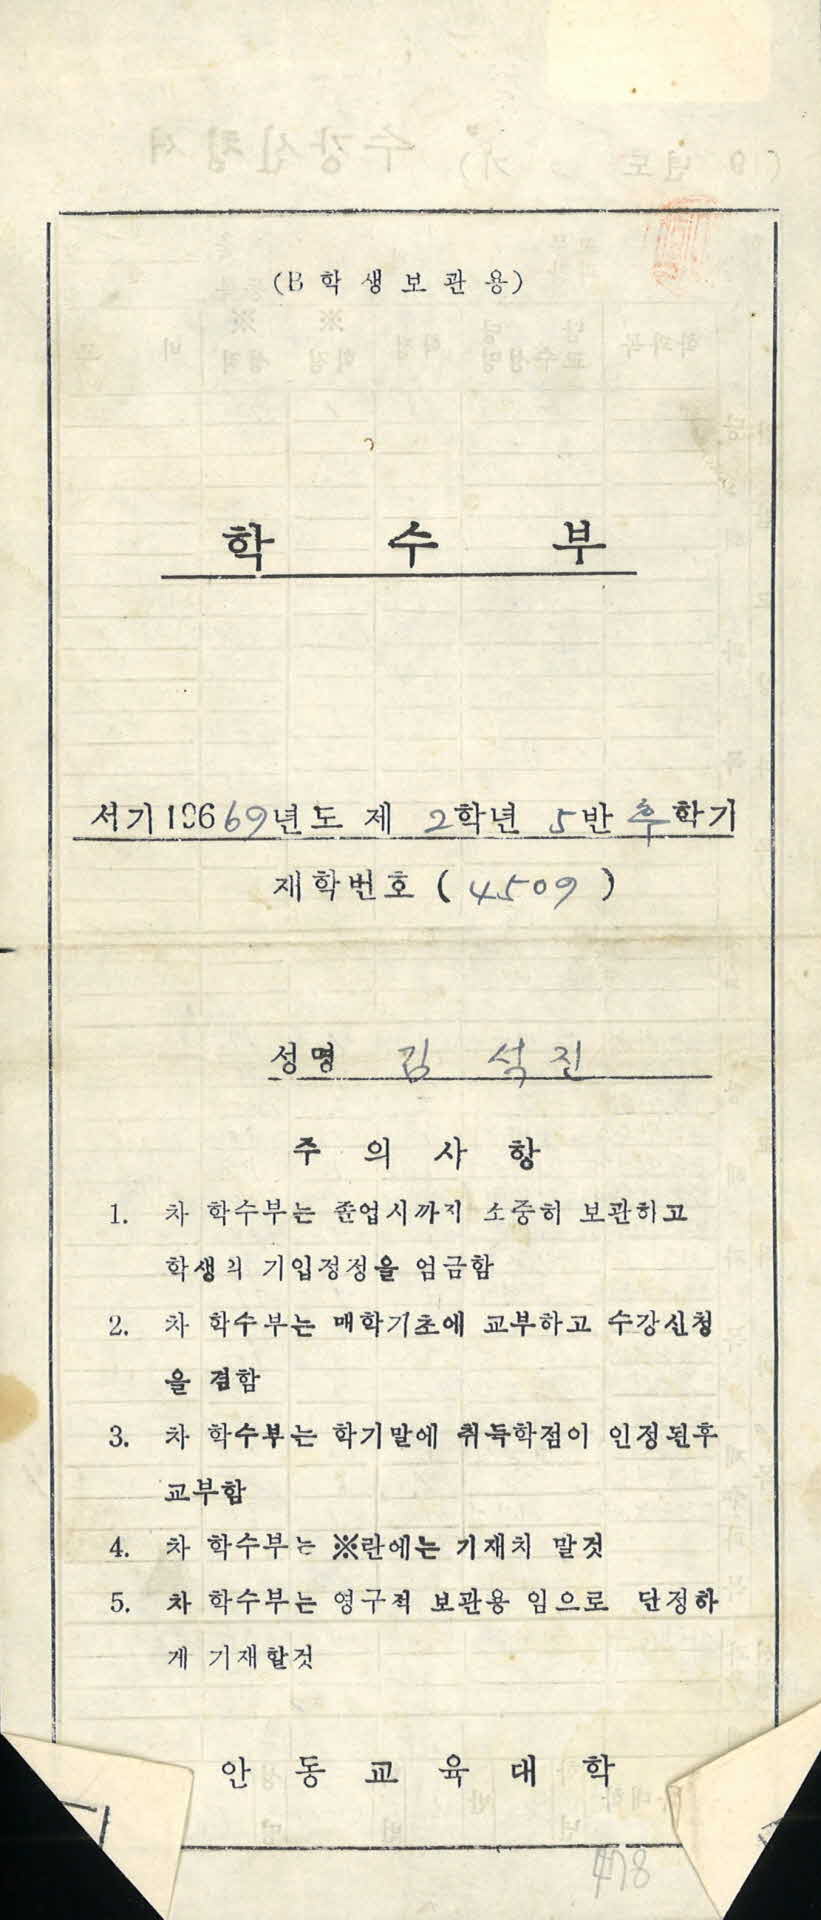 (B학생보관용)
학 수 부
서기196 69년도 제 2학년 5반 후학기
재학번호 ( 4509 )
성명 김 석 진
주 의 사 항
1. 차 학수부는 졸업시까지 소중히 보관하고
학생의 기입정정을 엄금함
2. 차 학수부는 매학기초에 교부하고 수강신청
을 겸함
3. 차 학수부는 학기말에 취득학점이 인정된후
교부함
4. 차 학수부는 ※란에는 기재치 말것
5. 차 학수부는 영구적 보관용 임으로 단정하
게 기재할것
안 동 교 육 대 학
478